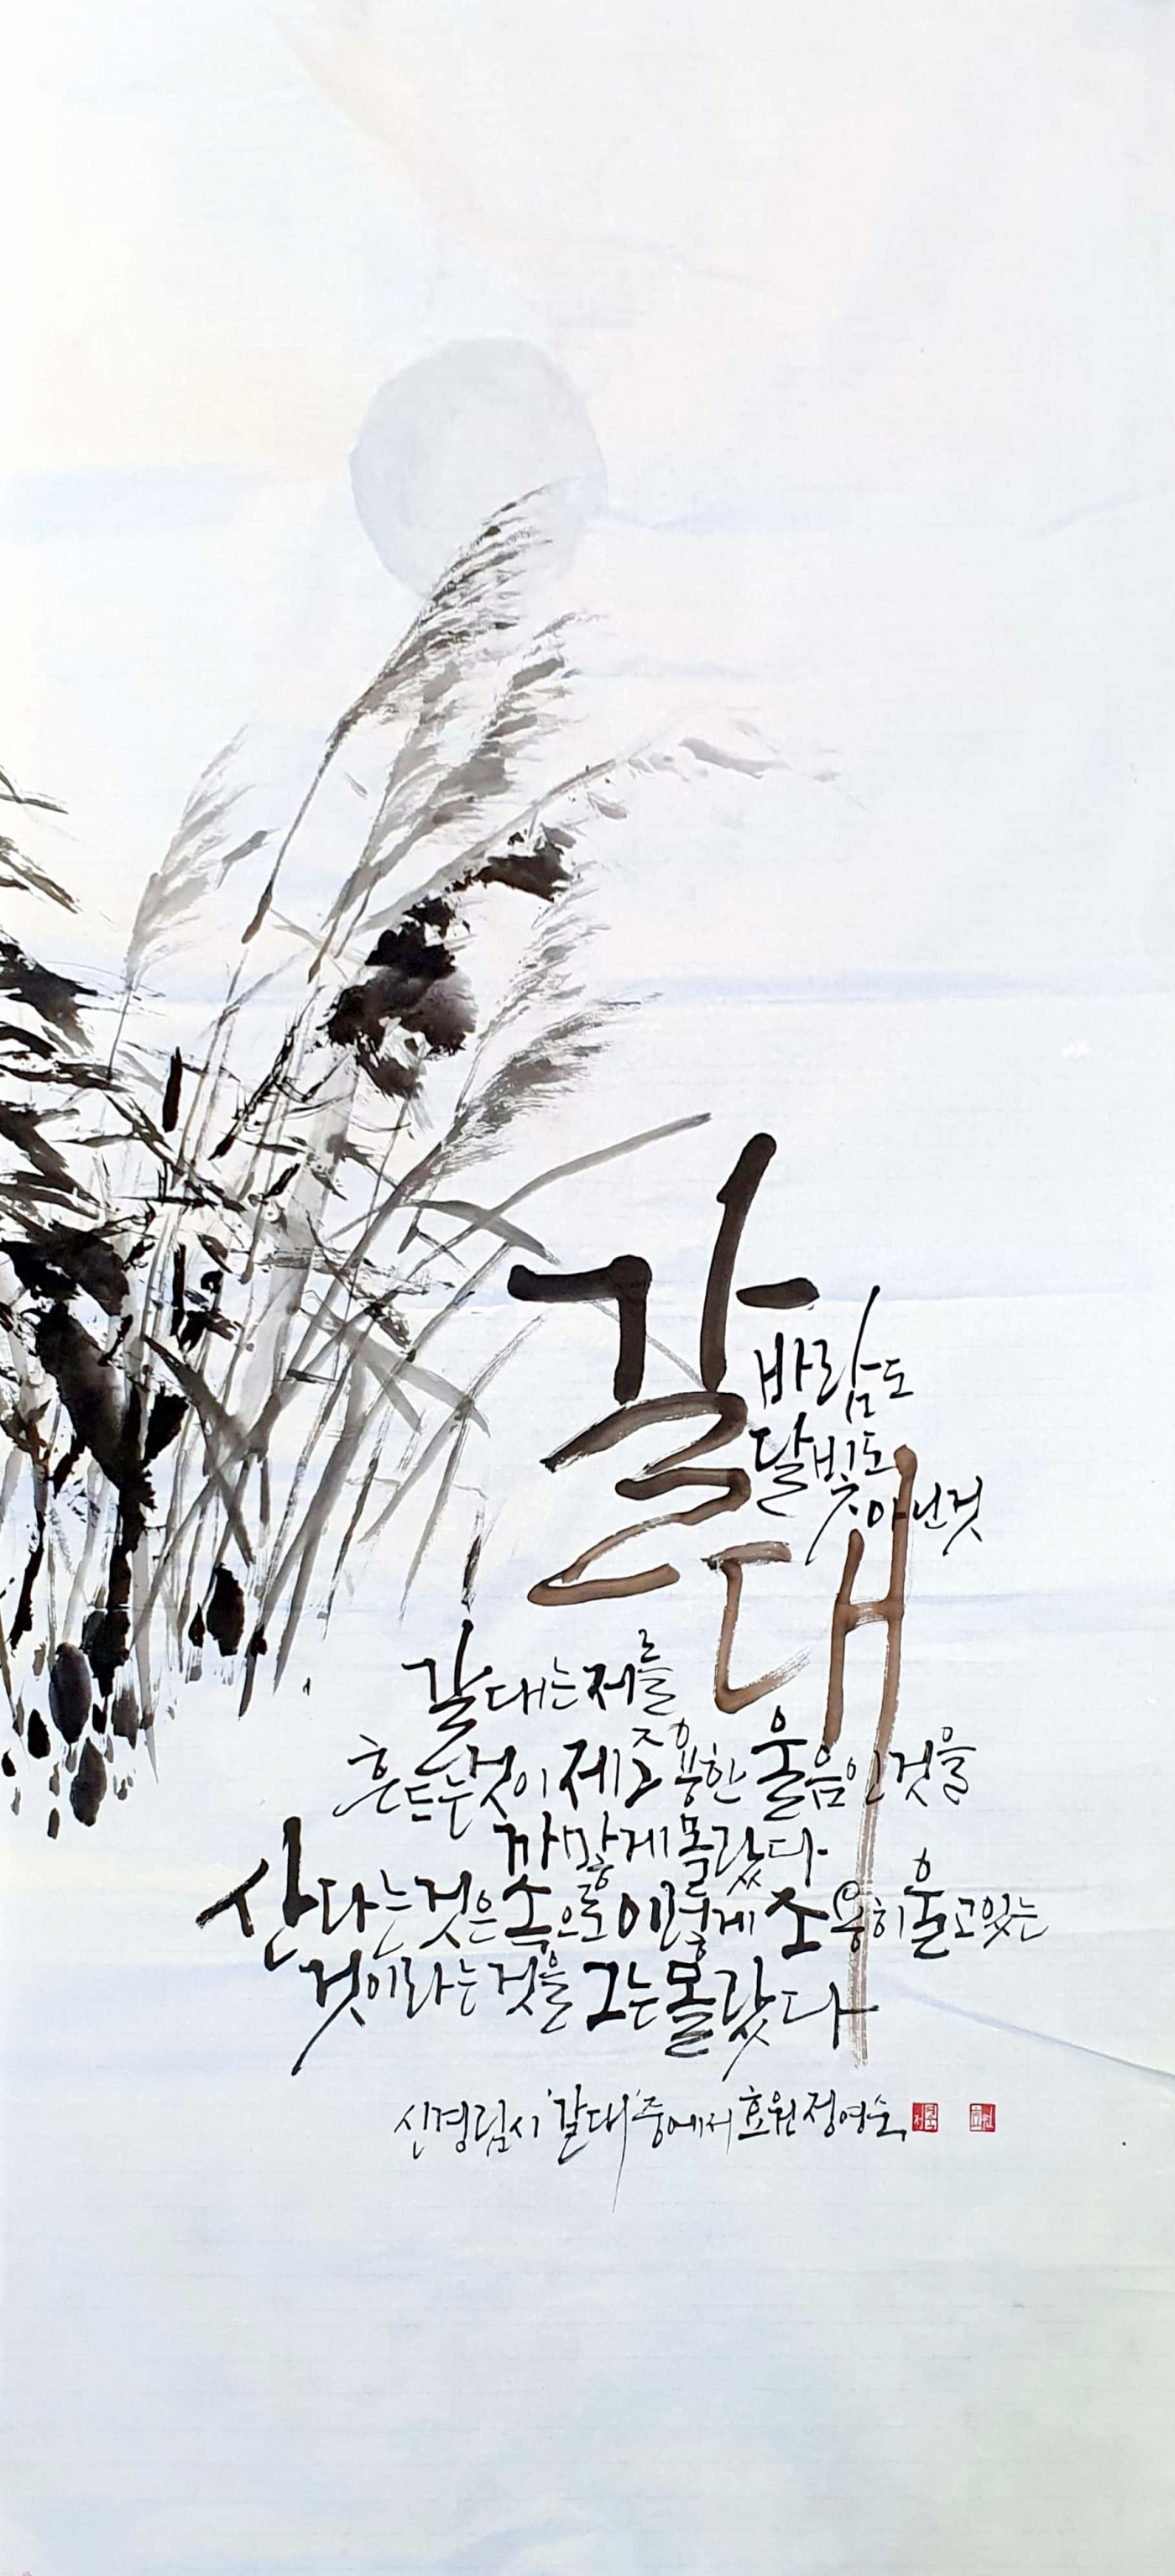 갈대
바람도
달빛도
아닌것
갈대는 저를
흔드는 것이 제 조용한 울음인 것을
까맣게 몰랐다
산다는 것은 속으로 이렇게 조용히 울고 있는
것이라는 것을 그는 몰랐다
신경림 시 '갈대' 중에서 효원 정영순